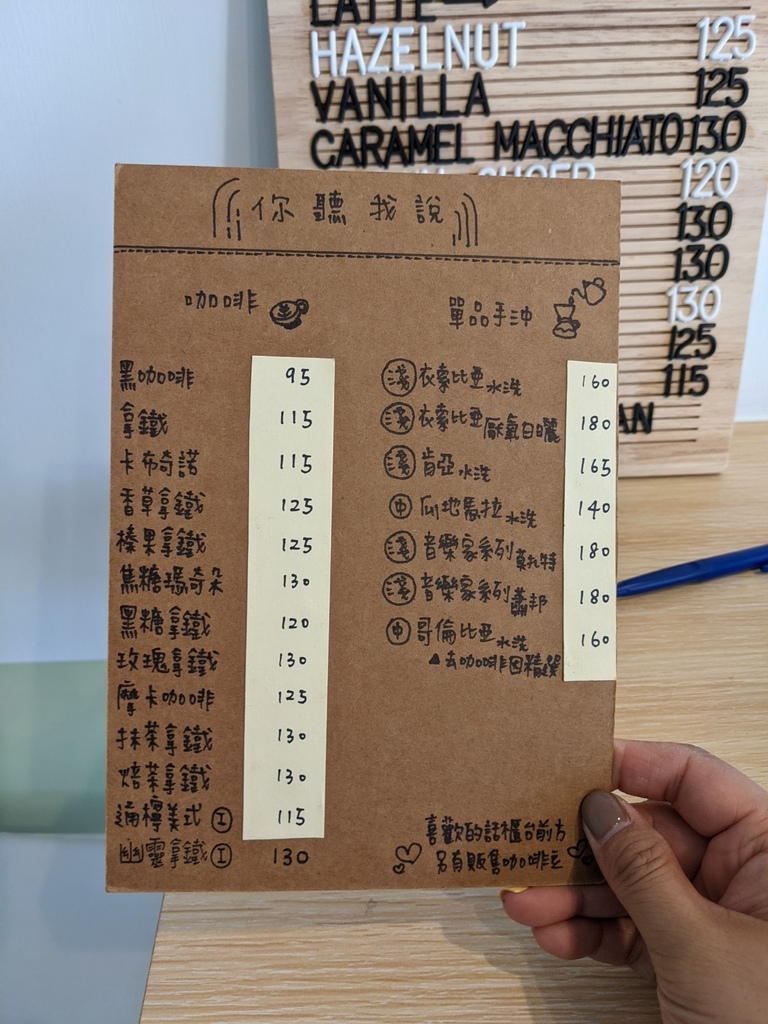 LATTE
HAZELNUT 125
VANILLA 125
CARAMEL MACCHIATO 130
120
130
130
130
125
115
AN
你聽我說
咖啡
黑咖啡 95
拿鐵 115
卡布奇諾 115
香草拿鐵 125
榛果拿鐵 125
焦糖瑪奇朵 130
黑糖拿鐵 120
玫瑰拿鐵 130
摩卡咖啡 125
抹茶拿鐵 130
焙茶拿鐵 130
西檸美式 I 115
幽靈拿鐵 I 130
單品手沖
淺 衣索比亞 水洗 160
淺 衣索比亞 厭氧日曬 180
淺 肯亞 水洗 165
中 瓜地馬拉 水洗 140
淺 音樂家系列 莫札特 180
淺 音樂家系列 蕭邦 180
中 哥倫比亞 水洗 160
▲去咖啡因精選
喜歡的話櫃台前方
另有販售咖啡豆